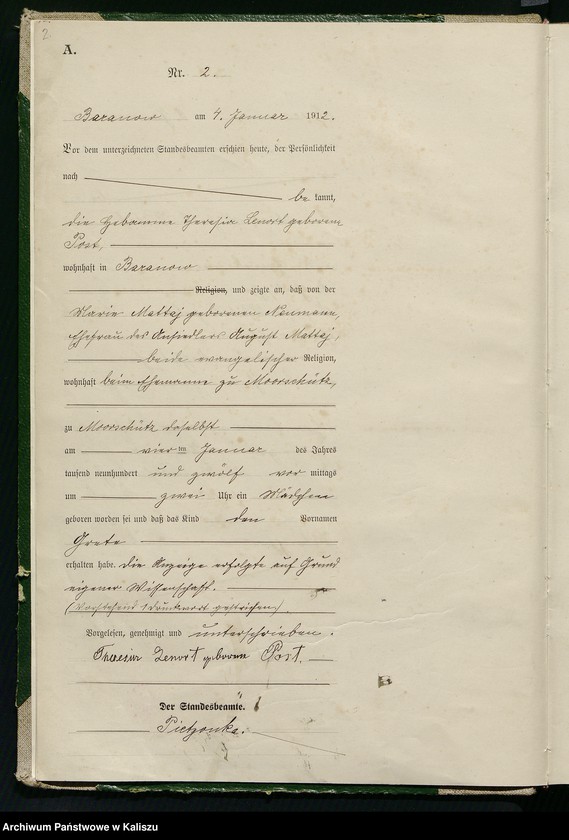 2
A.
Nr. 2.
Baranow am 4. Januar 1912.
Vor dem unterzeichneten Standesbeamten erschien heute, der Persönlichkeit
nach
be kannt,
die Hebamme Theresia Lenort geborene
Post,
wohnhaft in Baranow
Religion, und zeigte an, daß von der
Marie Mattaj geborenen Neumann,
Ehefrau des Ansiedlers August Mattaj,
beide evangelischer Religion,
wohnhaft beim Ehemanne zu Moorschütz,
zu Moorschütz daselbst
am vier ten Januar des Jahres
tausend neunhundert und zwölf vor mittags
um zwei Uhr ein Mädchen
geboren worden sei und daß das Kind den Vornamen
Grete
erhalten habe. Die Anzeige erfolgte auf Grund
eigener Wissenschaft.
(Vorstehend 1 Druckwort gestrichen)
Vorgelesen, genehmigt und unterschrieben.
Theresia Lenort geborene Post.
Der Standesbeamte.
Pietzonka.
Archiwum Państwowe w Kaliszu